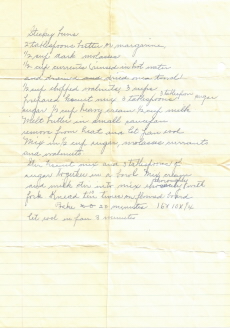 Sticky Buns
2 tablespoons butter or margarine
1/2 cup dark molasses
1/2 cup currants rinsed in hot water
and drained and dried on a towel
1/2 cup chopped walnuts 3 cups
prepared biscuit mix 3 tablespoons sugar
sugar 1/2 cup heavy cream 1/2 cup milk
Melt butter in small saucepan
remove from heat and let cool
Mix in cup sugar, molasses currants
and walnuts
biscuit mix and 3 tablespoons of
sugar together in a bowl Mix cream
and milk stir into mix thoroughly with
fork Knead ten times on floured board
Bake 400 20 minutes 16 X 10 X 1/2
let cool in pan 3 minutes